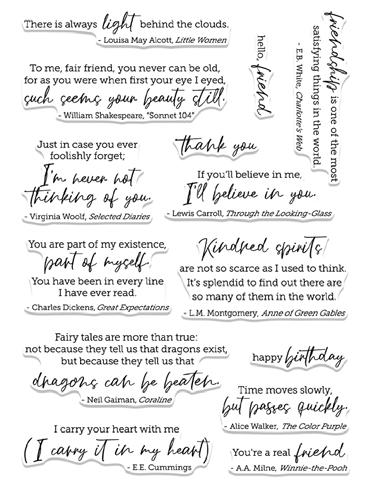 There is always light behind the clouds.
- Louisa May Alcott, Little Women
To me, fair friend, you never can be old,
for as you were when first your eye I eyed,
such seems your beauty still.
- William Shakespeare, "Sonnet 104"
hello, friend
friendship is one of the most
satisfying things in the world
- E.B. White, Charlotte's Web
Just in case you ever
foolishly forget;
I'm never not
thinking of you.
- Virginia Woolf, Selected Diaries
thank you
If you'll believe in me,
I'll believe in you.
- Lewis Carroll, Through the Looking-Glass
You are part of my existence,
part of myself.
You have been in every line
I have ever read.
- Charles Dickens, Great Expectations
Kindred spirits
are not so scarce as I used to think.
It's splendid to find out there are
so many of them in the world.
- L.M. Montgomery, Anne of Green Gables
Fairy tales are more than true:
not because they tell us that dragons exist,
but because they tell us that
dragons can be beaten.
- Neil Gaiman, Coraline
happy birthday
Time moves slowly,
but passes quickly.
- Alice Walker, The Color Purple
I carry your heart with me
(I carry it in my heart)
- E.E. Cummings
You're a real friend.
- A.A. Milne, Winnie-the-Pooh